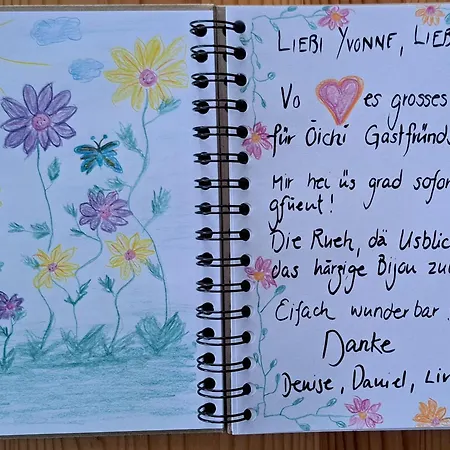 LIEBI YVONNE, LIEB
Vo es grosses
für Öichi Gastfründ
Mir hei üs grad sofor
gfüent!
Die Rueh, dä Usblic
das härzige Bijou zu
Eifach wunderbar
Danke
Denise, Daniel, Lin